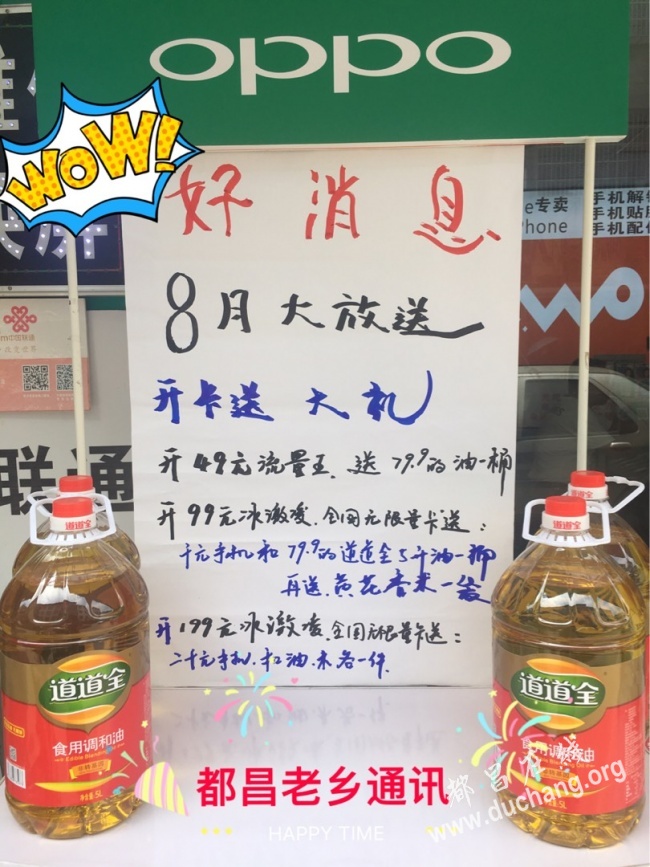 oppo
WOW!
好消息
8月大放送
开卡送大机
开49元流量王、送79.9的油一桶
开99元冰激凌、全国无限量卡送:
千元手机和79.9的道道全5升油一桶
再送、黄花香米一袋
开199元冰激凌、全国无限量卡送:
二千元手机、和油、米各一件
e专卖
Phone
手机解
手机贴
手机配
中国联通
联通
道道全
道道全
道道全
食用调和油
5L
道道全
道道全
食用调和油
5L
都昌老乡通讯
HAPPY TIME
都昌在线
www.duchang.org